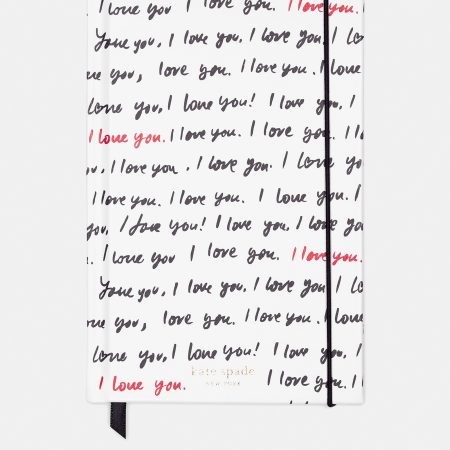 I love you. I love you. I love you.
love you, I love you. I love you. I lo
ve you, love you. I love you. I love
love you, I love you! I love you, I
I love you. I love you. I love you. I
you, I love you. I love you. I love yo
I love you. I love you. I love you. I
you, I love you! I love you, I love yo
I love you I love you. I love you.
love you, I love you. I love you. I lo
ve you, love you. I love you. I love
love you, I love you! I love you, I
kate spade
NEW YORK
I love you. I love you. I